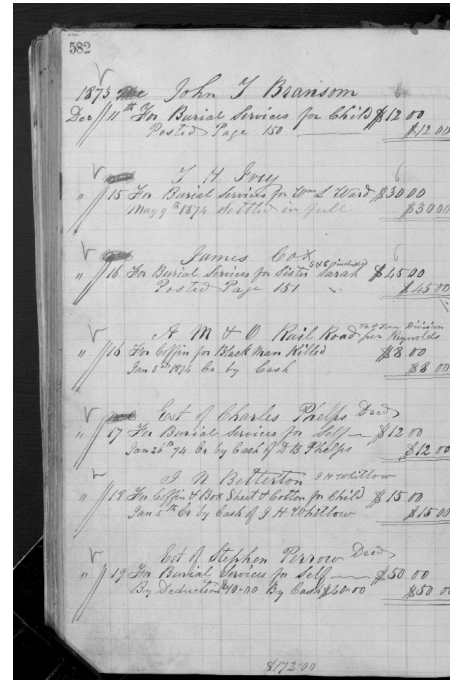 582
1873 John T Bransom
Dec 11th For Burial Services for Child $12 00
Posted Page 150 $12.00
T H Ivey
" 15 For Burial Services for Wm S Ward $30.00
May 9th 1874 Settled in full $30.00
James Cox
" 16 For Burial Services for Sister Sarah $45.00
Posted Page 151 " $45.00
A M & O Rail Road for Reynolds
" 16 For Coffin for Black Man Killed $8 00
Jan 3rd 1874 Cr by Cash $8 00
Est of Charles Phelps Decd
" 17 For Burial Services for Self $12 00
Jan 26 74 Cr by Cash of D B Phelps $12 00
J N Betterton J H Whitlow
" 18 For Coffin & Box Sheet & Cotton for Child $15 00
Jan 5th Cr by Cash of J H Whitlow $15.00
Est of Stephen Perrow Decd
" 19 For Burial Services for Self $50 00
By Deduction $10.00 By Cash $40.00 $50 00
$172.00